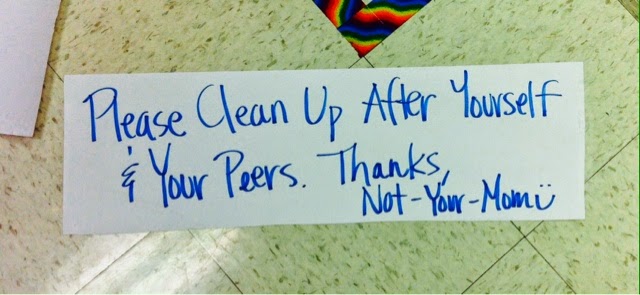 Please Clean Up After Yourself
& Your Peers. Thanks,
Not-Your-Mom ü